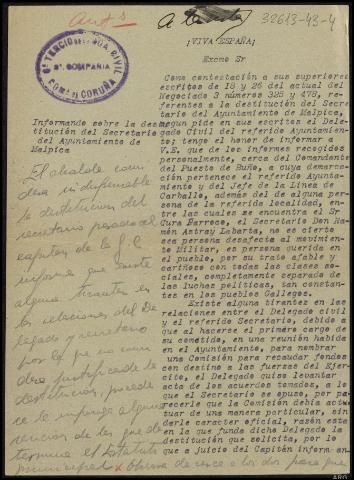 32613-43-4
¡VIVA ESPAÑA!
Excmo Sr
8º TERCIO DE LA GUARDIA CIVIL
COMPAÑIA
COMª DE CORUÑA
Informando sobre la des-
titución del Secretario
del Ayuntamiento de
Malpica
Como contestación a sus superiores
escritos de 18 y 26 del actual del
Negociado 3 números 325 y 478, re-
ferentes a la destitución del Secre-
tario del Ayuntamiento de Malpica,
segun pide en sus escritos el Dele-
gado Civil del referido Ayuntamien-
to; tengo el honor de informar a
V.E. que de los informes recogidos
personalmente, cerca del Comandante
del Puesto de Buño, a cuya demarca-
ción pertenece el referido Ayunta-
miento y del Jefe de la Linea de
Carballo, además del de alguna per-
sona de la referida localidad, entre
las cuales se encuentra el Sr
Cura Parroco, el Secretario Don Ma-
nán Astray Labarta, no es cierto
sea persona desafecta al movimiento
Militar, es persona querida en
el pueblo, por su trato afable y
cariñoso con todas las clases so-
ciales, completamente separado de
las luchas politicas, tan constan-
tes en los pueblos Gallegos.
Existe alguna tirantez en las
relaciones entre el Delegado civil
y el referido Secretario, debido a
que al hacerse el primero cargo de
su cometido, en una reunión habida
en el Ayuntamiento, para nombrar
una Comisión para recaudar fondos
con destino a las fuerzas del Ejer-
cito, el Delegado quiso levantar
acta de los acuerdos tomados, a lo
que el Secretario se opuso, por pa-
recerle que la Comisión debia actu-
tuar de una manera particular, sin
darle carácter oficial, razón esta
en la que funda dicho Delegado la
destitución que solicita, por lo
que a juicio del Capitán informan-
El alcalde con
dera indispensable
la destitución del
secretario pero el
capitan de la G.C
informa que existe
alguna tirantez en
las relaciones del De
legado y secretario
por lo que no con
dera justificada la
destitución, procede
se le imponga alguna
sancion de las que de
termina el Estatuto
municipal